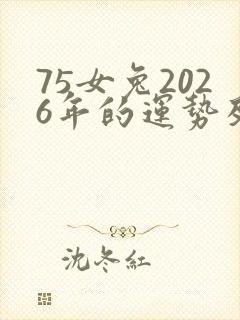 75女兔202
6年的運勢
沈冬紅